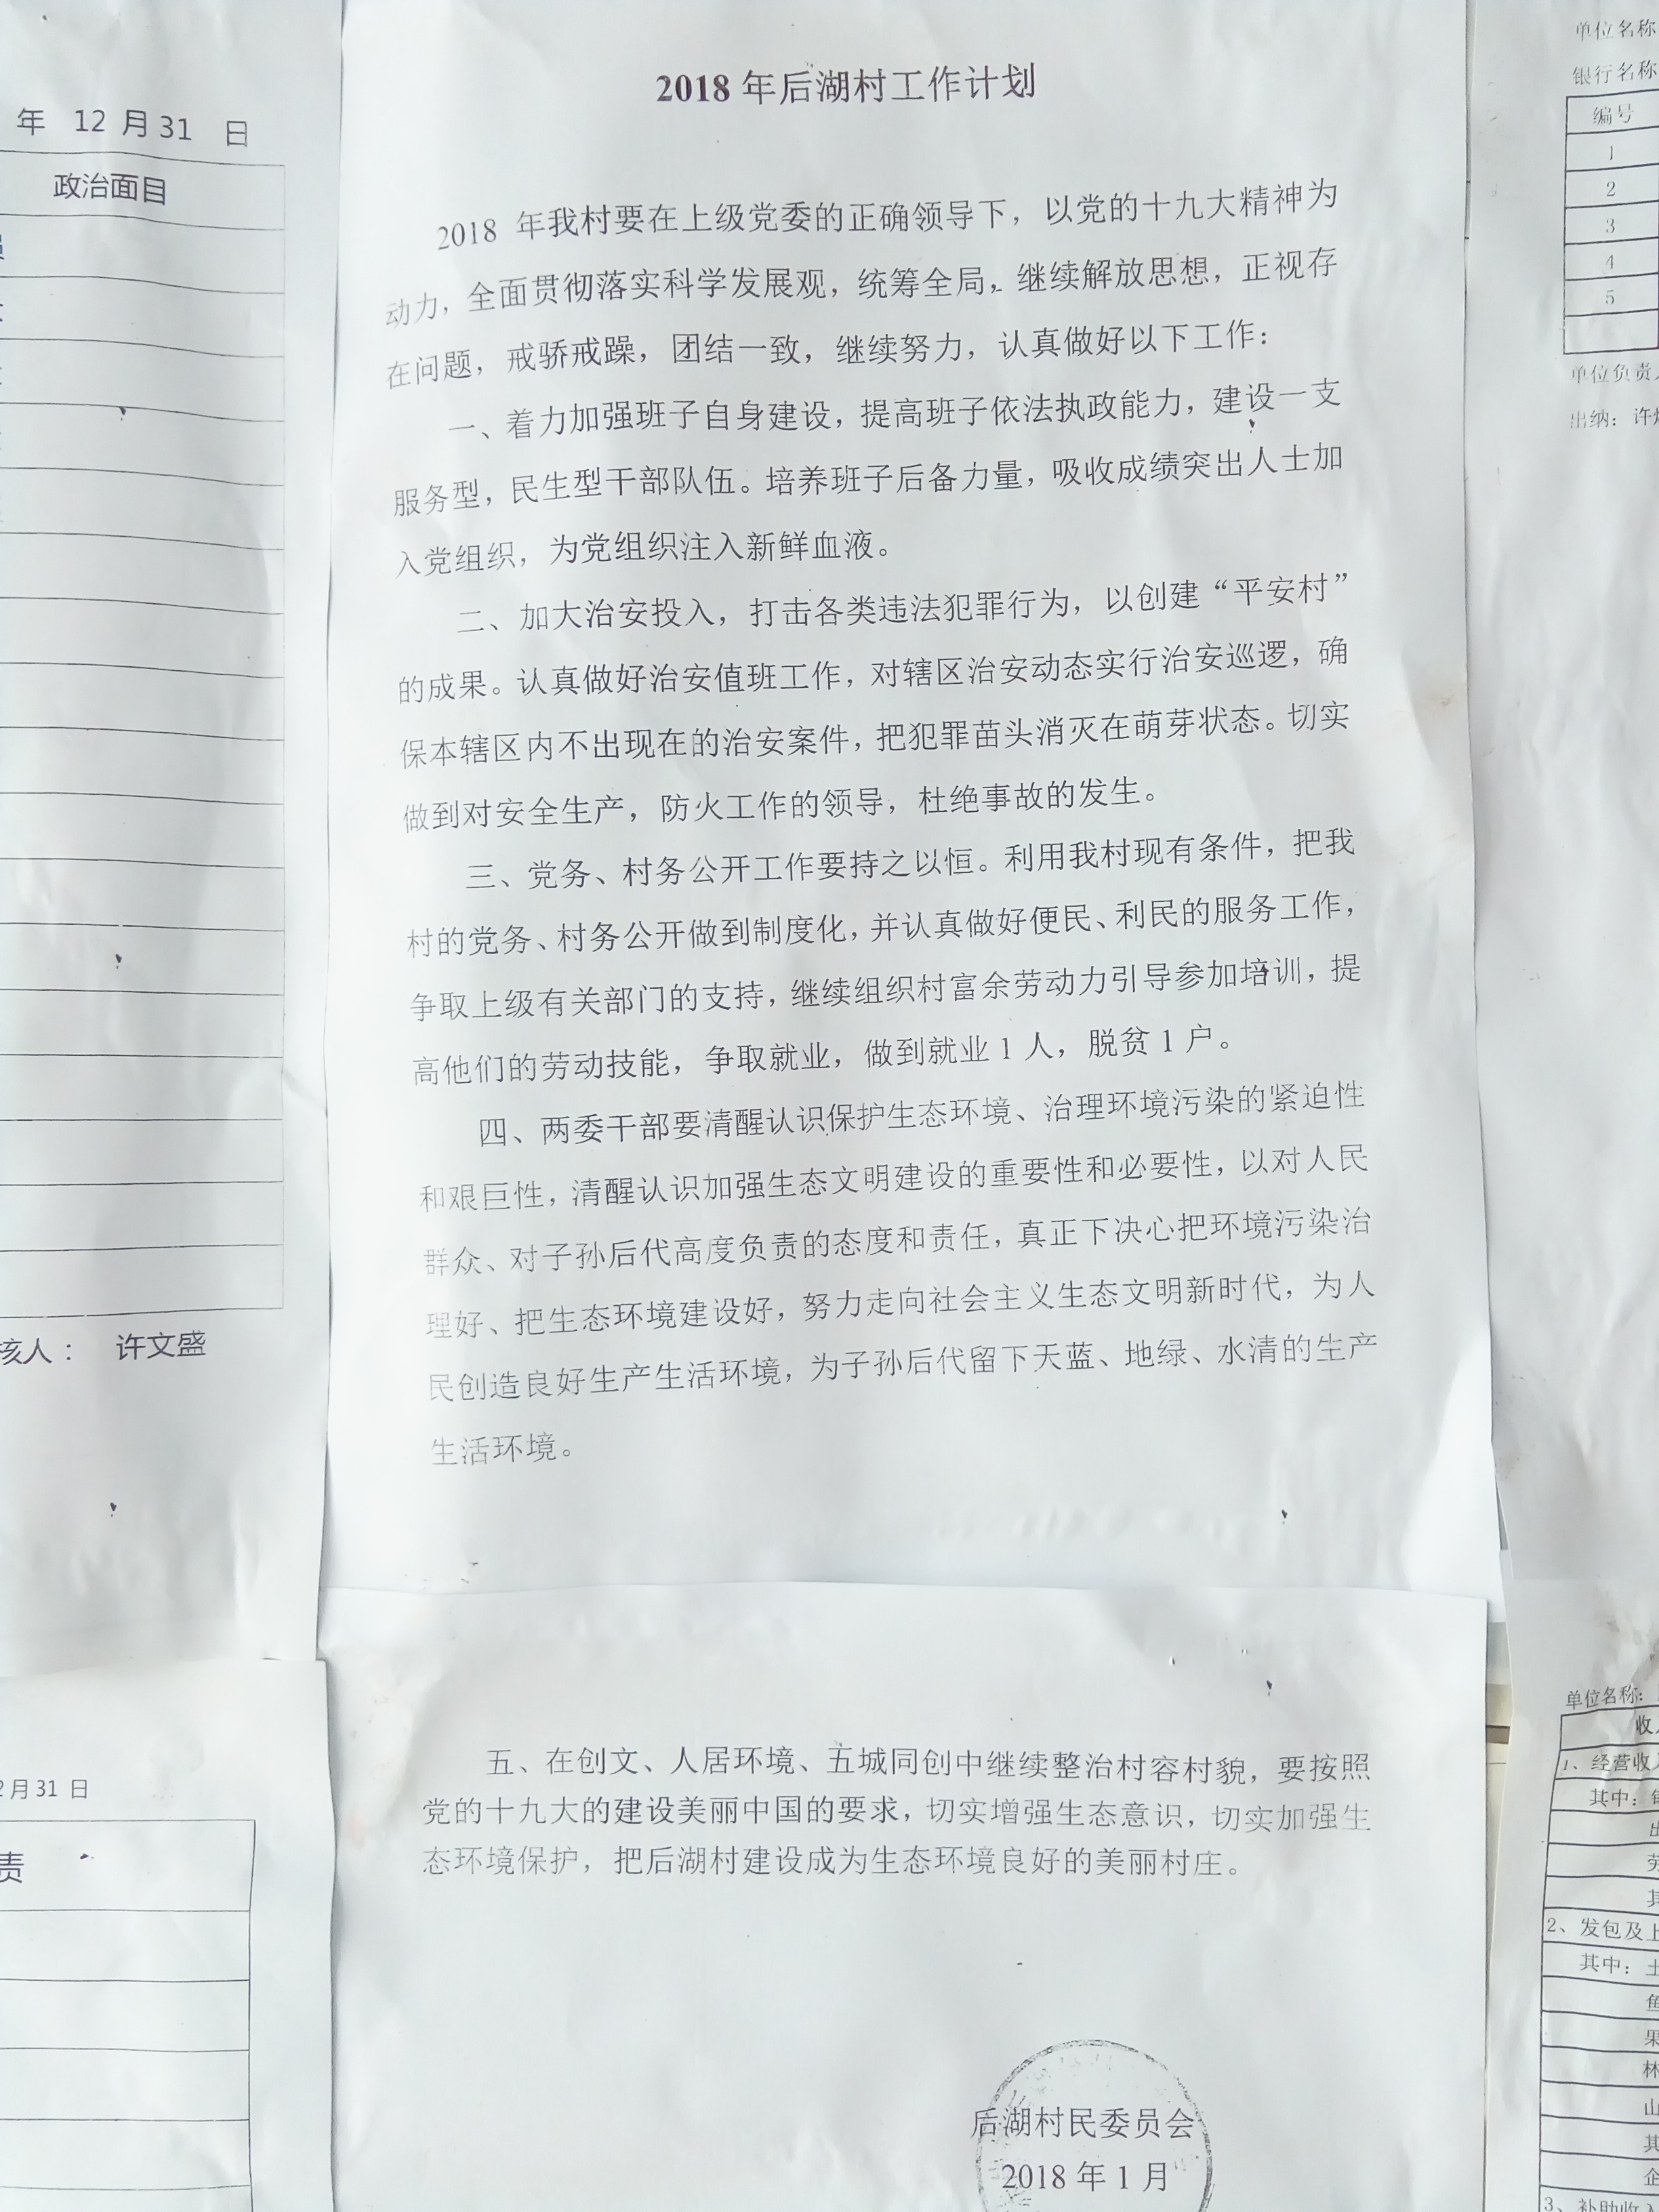 2018年后湖村工作计划
2018 年我村要在上级党委的正确领导下，以党的十九大精神为
动力，全面贯彻落实科学发展观，统筹全局，继续解放思想，正视存
在问题，戒骄戒躁，团结一致，继续努力，认真做好以下工作：
一、着力加强班子自身建设，提高班子依法执政能力，建设一支
服务型，民生型干部队伍。培养班子后备力量，吸收成绩突出人士加
入党组织，为党组织注入新鲜血液。
二、加大治安投入，打击各类违法犯罪行为，以创建“平安村”
的成果。认真做好治安值班工作，对辖区治安动态实行治安巡逻，确
保本辖区内不出现在的治安案件，把犯罪苗头消灭在萌芽状态。切实
做到对安全生产，防火工作的领导，杜绝事故的发生。
三、党务、村务公开工作要持之以恒。利用我村现有条件，把我
村的党务、村务公开做到制度化，并认真做好便民、利民的服务工作，
争取上级有关部门的支持，继续组织村富余劳动力引导参加培训，提
高他们的劳动技能，争取就业，做到就业1人，脱贫1户。
四、两委干部要清醒认识保护生态环境、治理环境污染的紧迫性
和艰巨性，清醒认识加强生态文明建设的重要性和必要性，以对人民
群众、对子孙后代高度负责的态度和责任，真正下决心把环境污染治
理好、把生态环境建设好，努力走向社会主义生态文明新时代，为人
民创造良好生产生活环境，为子孙后代留下天蓝、地绿、水清的生产
生活环境。
五、在创文、人居环境、五城同创中继续整治村容村貌，要按照
党的十九大的建设美丽中国的要求，切实增强生态意识，切实加强生
态环境保护，把后湖村建设成为生态环境良好的美丽村庄。
后湖村民委员会
2018年1月
年 12 月31 日
政治面目
核人： 许文盛
月31 日
责
单位名称
银行名称
编号
1
2
3
4
5
单位负责
出纳：许
单位名称：
收
1、经营收
其中：
出
劳
其
2、发包及上
其中：土
鱼
果
林
山
其
企
3、补助收入